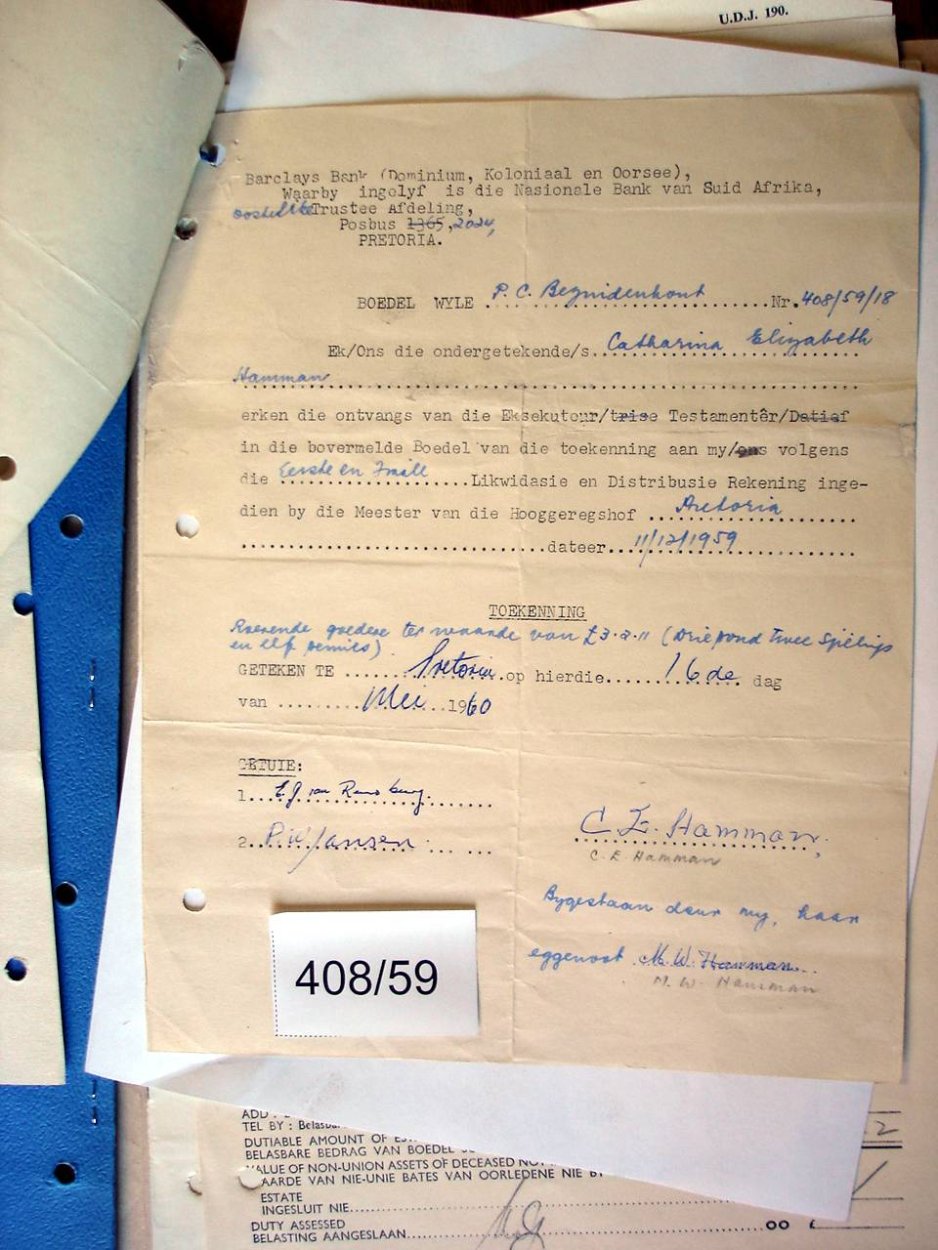 U.D.J. 190.
Barclays Bank (Dominium, Koloniaal en Oorsee),
Waarby ingolyf is die Nasionale Bank van Suid Afrika,
Trustee Afdeling,
Posbus 1365, 2024,
PRETORIA.
BOEDEL WYLE P. C. Bezuidenhout Nr. 408/59/18
Ek/Ons die ondergetekende/s. Catharina Elizabeth
Hamman
erken die ontvangs van die Eksekuteur/trise Testamentêr/Datief
in die bovermelde Boedel van die toekenning aan my/ons volgens
die Eerste en Finale Likwidasie en Distribusie Rekening inge-
dien by die Meester van die Hooggeregshof Pretoria
dateer 11/12/1959
TOEKENNING
Roerende goedere ter waarde van £3-2-11 (Drie pond twee sjielings
en elf pennies)
GETEKEN TE Pretoria op hierdie 16de dag
van Mei 1960
GETUIE:
1. van Rensburg.
2. P. W. Jansen
C. E. Hamman
C. E. Hamman
Bygestaan deur my, haar
eggenoot M. W. Hamman
M. W. Hamman
408/59
ADD
TEL BY : Belasba
DUTIABLE AMOUNT OF ES
BELASBARE BEDRAG VAN BOEDEL
VALUE OF NON-UNION ASSETS OF DECEASED NOT
WAARDE VAN NIE-UNIE BATES VAN OORLEDENE NIE BY
ESTATE
INGESLUIT NIE
DUTY ASSESSED
BELASTING AANGESLAAN 00 £